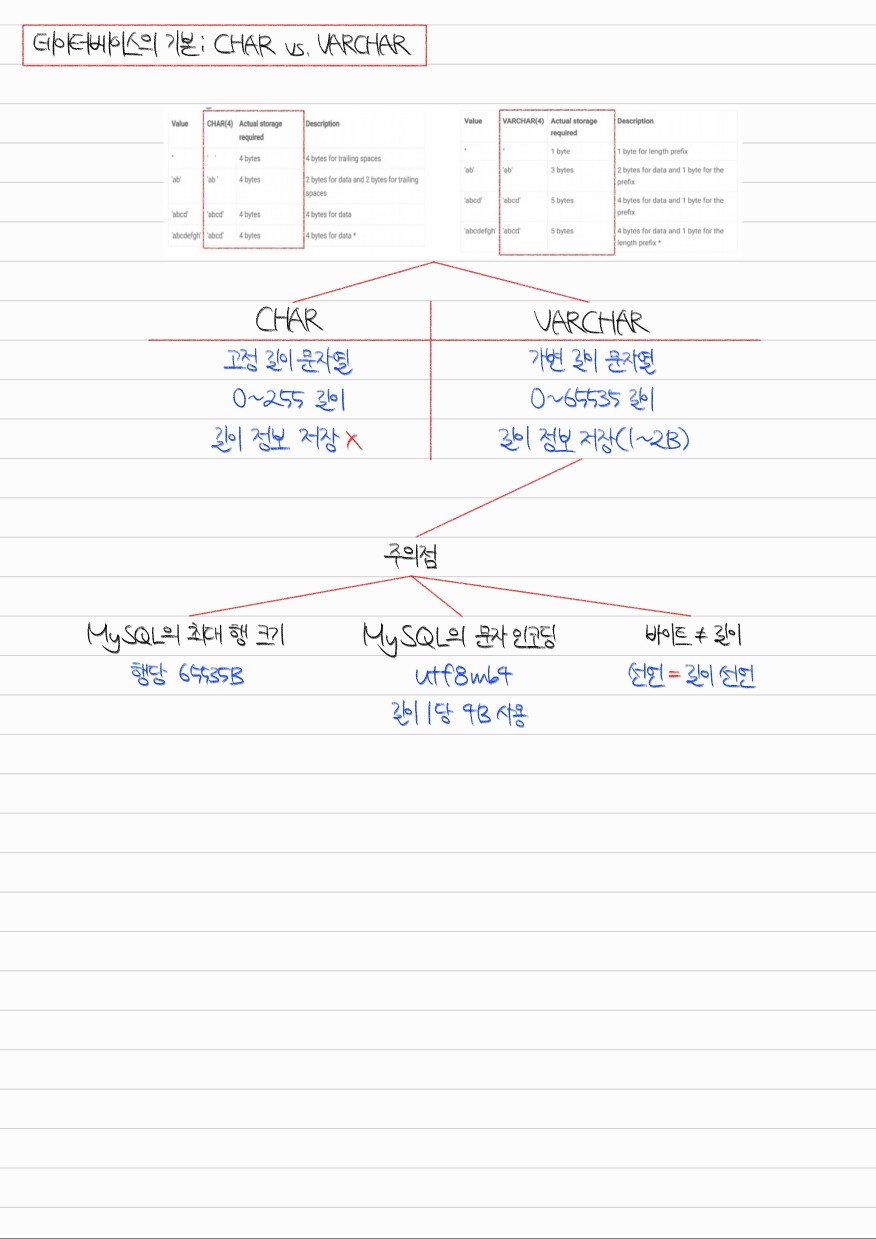 데이터베이스의 기본; CHAR vs. VARCHAR
Value CHAR(4) Actual storage required Description
'' '    ' 4 bytes 4 bytes for trailing spaces
'ab' 'ab  ' 4 bytes 2 bytes for data and 2 bytes for trailing spaces
'abcd' 'abcd' 4 bytes 4 bytes for data
'abcdefgh' 'abcd' 4 bytes 4 bytes for data *
Value VARCHAR(4) Actual storage required Description
'' '' 1 byte 1 byte for length prefix
'ab' 'ab' 3 bytes 2 bytes for data and 1 byte for the prefix
'abcd' 'abcd' 5 bytes 4 bytes for data and 1 byte for the prefix
'abcdefgh' 'abcd' 5 bytes 4 bytes for data and 1 byte for the length prefix *
CHAR VARCHAR
고정 길이 문자열 가변 길이 문자열
0~255 길이 0~65535 길이
길이 정보 저장 X 길이 정보 저장(1~2B)
주의점
MySQL의 최대 행 크기 MySQL의 문자 인코딩 바이트 ≠ 길이
행당 65535B utf8mb4 선언 = 길이 선언
길이 1당 4B 사용